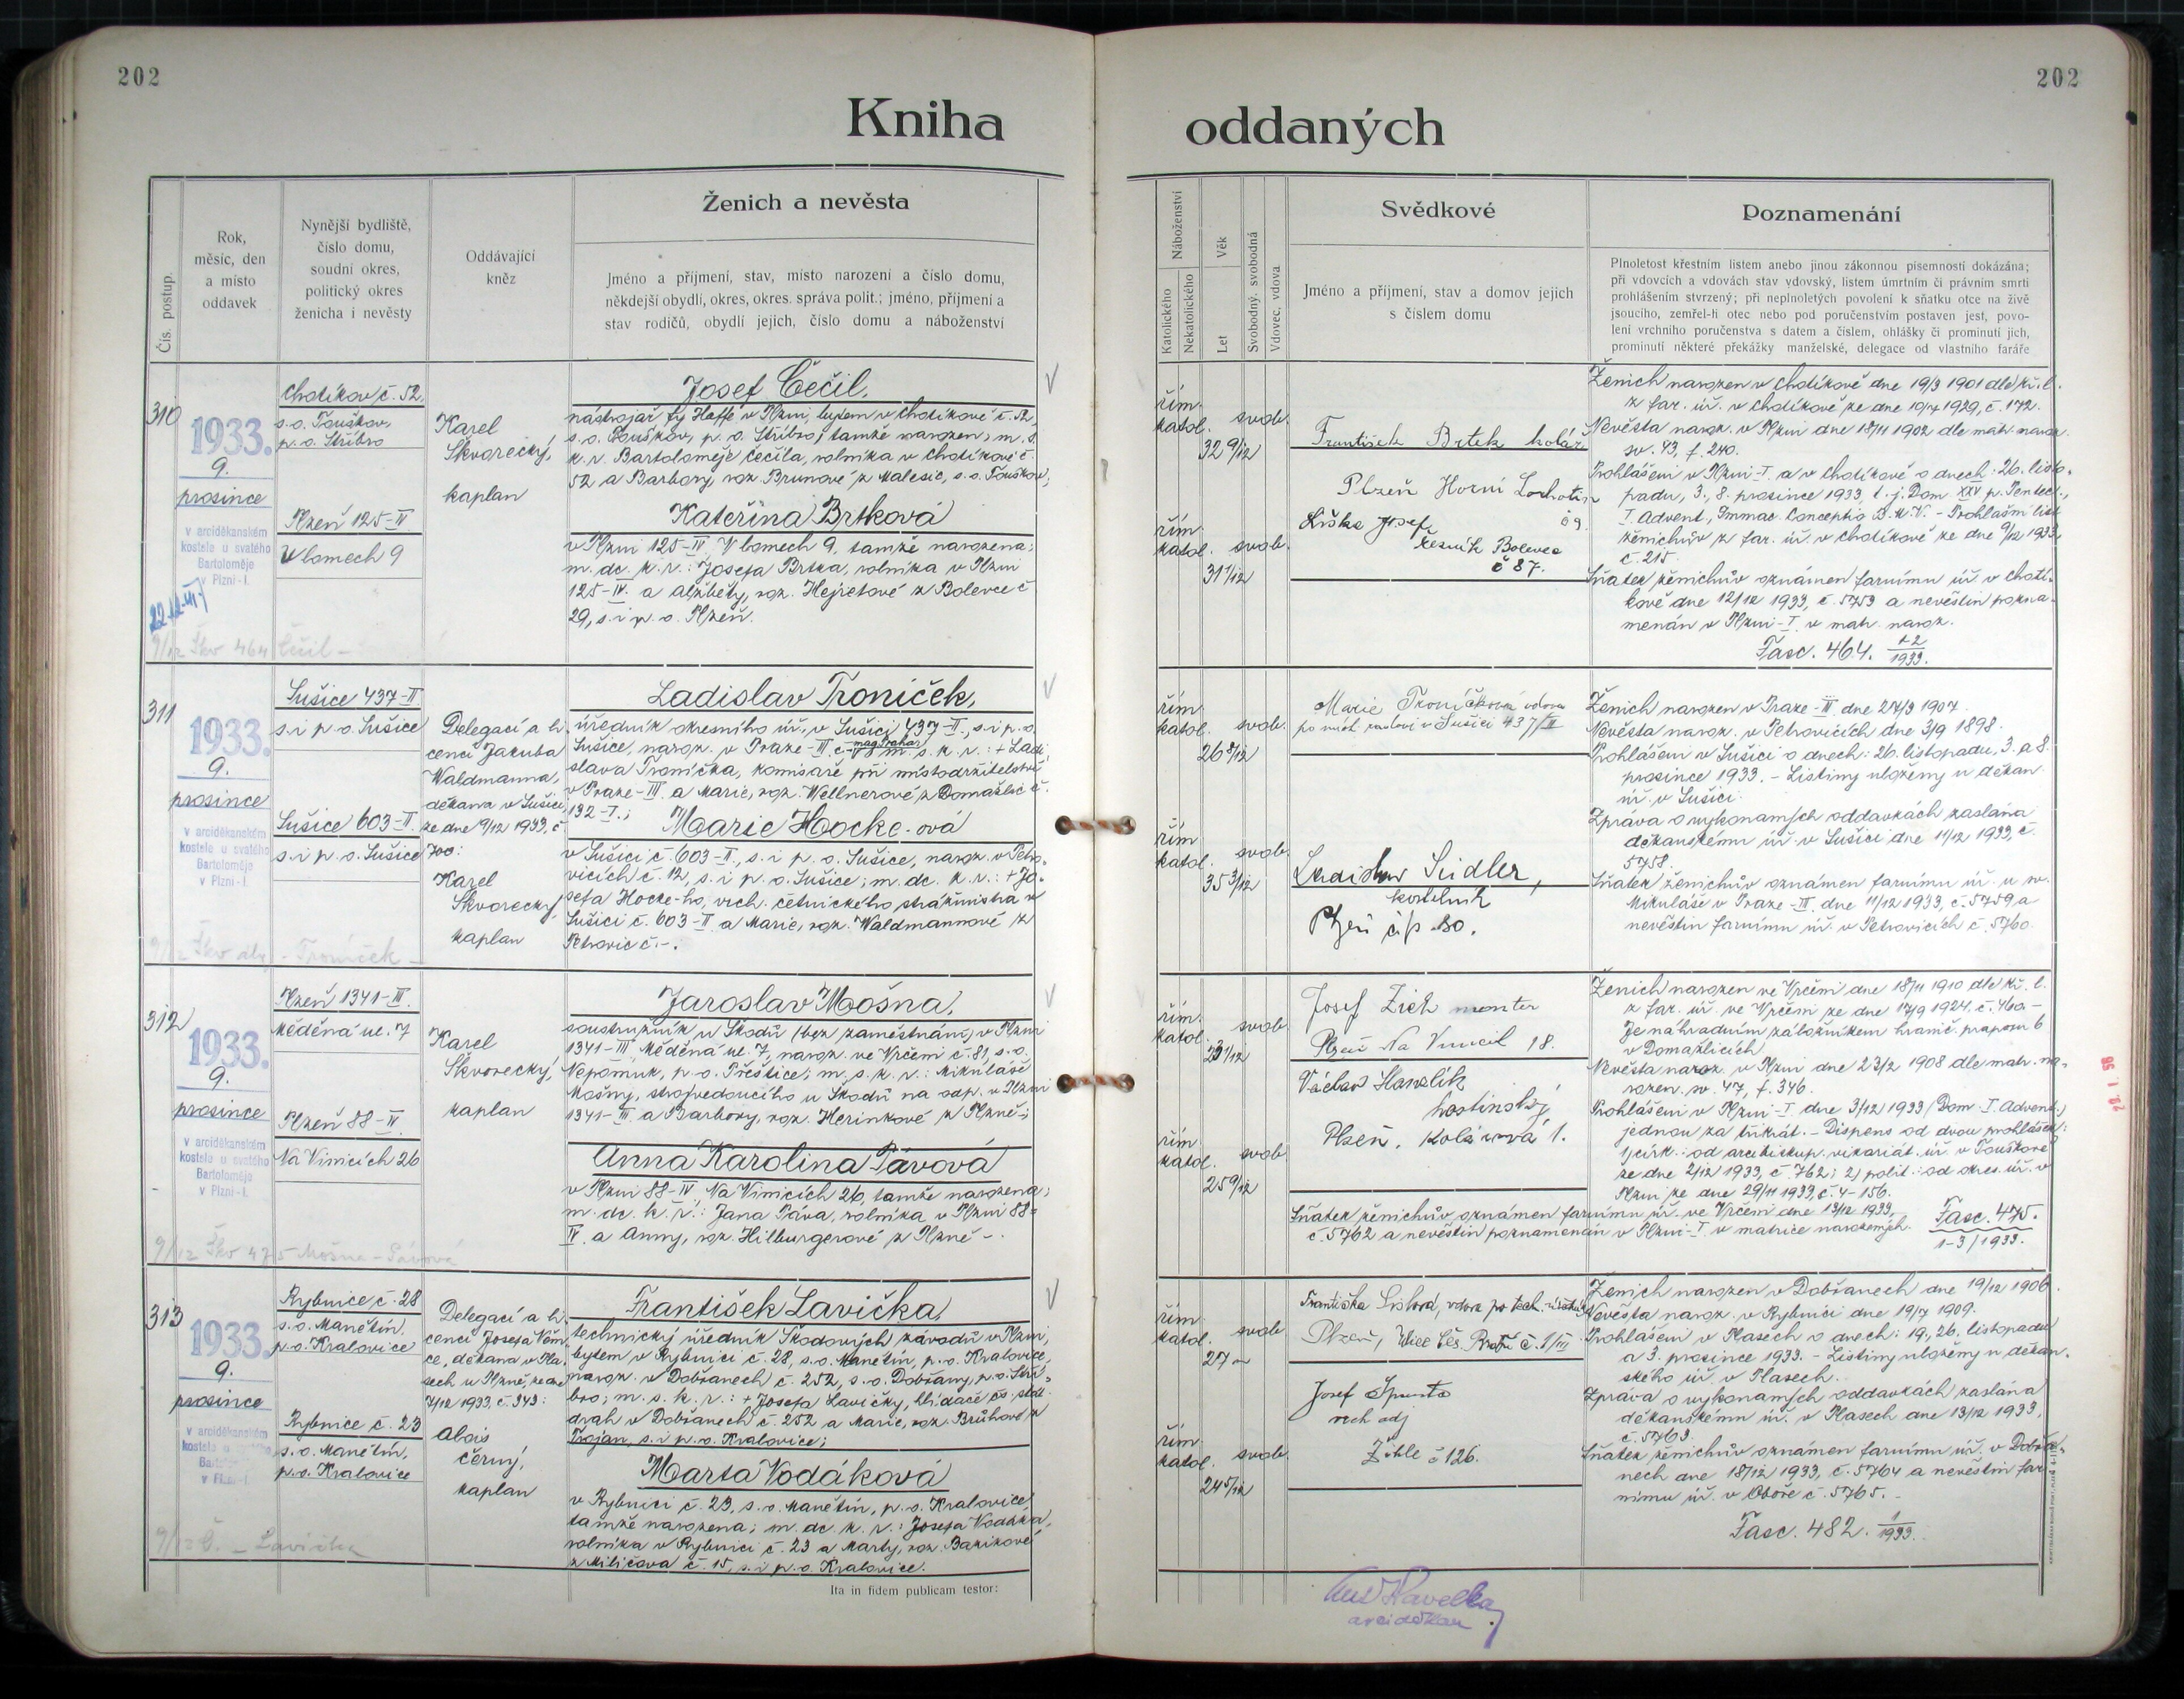 202
202
Kniha
oddaných
Čís. postup.
Rok,
měsíc, den
a místo
oddavek
Nynější bydliště,
číslo domu,
soudní okres,
politický okres
ženicha i nevěsty
Oddávající
kněz
Ženich a nevěsta
Jméno a příjmení, stav, místo narození a číslo domu,
někdejší obydlí, okres, okres. správa polit.; jméno, příjmení a
stav rodičů, obydlí jejich, číslo domu a náboženství
Náboženství
Katolického
Nekatolického
Věk
Let
Svobodný, svobodná
Vdovec, vdova
Svědkové
Jméno a příjmení, stav a domov jejich
s číslem domu
Poznamenání
Plnoletost křestním listem anebo jinou zákonnou písemností dokázána;
při vdovcích a vdovách stav vdovský, listem úmrtním či právním smrti
prohlášením stvrzený; při neplnoletých povolení k sňatku otce na živě
jsoucího, zemřel-li otec nebo pod poručenstvím postaven jest, povo-
lení vrchního poručenstva s datem a číslem, ohlášky či prominutí jich,
prominutí některé překážky manželské, delegace od vlastního faráře
310
1933.
9.
prosince
v arciděkanském
kostele u svatého
Bartoloměje
v Plzni-I.
9/12 Škv 464 Čečil -
Chotíkov č. 52,
s.o. Touškov,
p.o. Stříbro
Plzeň 125-IV
V lomech 9
Karel
Škvorecký,
kaplan
Josef Čečil,
nástrojař fy Heffe v Plzni, bytem v Chotíkově č. 52,
s.o. Touškov, p.o. Stříbro, tamže narozen; m. s.
k. v. Bartoloměje Čečila, rolníka v Chotíkově č.
52 a Barbory, roz. Brunové z Malesic, s.o. Touškov;
Kateřina Brtková
v Plzni 125-IV, V lomech 9, tamže narozena;
m. dc. k. v.: Josefa Brtka, rolníka v Plzni
125-IV. a Alžběty, roz. Hejretové z Bolevce č
29, s. i p. o. Plzeň.
řím.
katol. svob.
32 9/12
řím.
katol. svob.
31 1/12
František Brtek kolář
Plzeň Horní Lochotín
č 9.
Liška Josef,
řezník Bolevec
č 87.
Ženich narozen v Chotíkově dne 19/3 1901 dle kř. l.
z far. úř. v Chotíkově ze dne 19/7 1929, č. 172.
Nevěsta naroz. v Plzni dne 18/11 1902 dle matr. naroz.
sv. 43, f. 240.
Prohlášeni v Plzni-I. a v Chotíkově o dnech: 26. listo-
padu, 3., 8. prosince 1933, t. j. Dom XXV p. Pentec.,
I. Advent., Immac. Conceptio B. M. V. - Prohlášní list
ženichův z far. úř. v Chotíkově ze dne 9/12 1933,
č. 215.
Sňatek ženichův oznámen farnímu úř. v Chotí-
kově dne 12/12 1933, č. 5753 a nevěstin pozna-
menán v Plzni-I. v matr. naroz.
Fasc. 464. 1-2/1933.
311
1933.
9.
prosince
v arciděkanském
kostele u svatého
Bartoloměje
v Plzni-I.
- Troníček -
Sušice 437-II
s. i p. o. Sušice
Sušice 603-II
s. i p. o. Sušice
Delegací a li-
cencí Jakuba
Waldmanna,
děkana v Sušici,
ze dne 9/12 1933, č.
700:
Karel
Škvorecký,
kaplan
Ladislav Troníček,
úředník okresního úř. v Sušici 437-II, s. i p. o.
Sušice, naroz. v Praze-III, m. s. k. v.: + Ladi-
slava Troníčka, komisaře při místodržitelství
v Praze-III. a Marie, roz. Wellnerové z Domažlic č.
132-I.;
Marie Hocke-ová
v Sušici č. 603-II, s. i p. o. Sušice, naroz. v Petro-
vicích č. 12, s. i p. o. Sušice; m. dc. k. v.: + Jo-
sefa Hocke-ho, vrch. četnického strážmistra v
Sušici č. 603-II a Marie, roz. Waldmannové z
Petrovic č. -.
řím.
katol. svob.
26 8/12
řím.
katol. svob.
35 3/12
Marie Troníčková vdova
Sušici 437/II
Ladislav Seidler,
kostelník
Plzeň čp 80.
Ženich narozen v Praze-III. dne 27/3 1907.
Nevěsta naroz. v Petrovicích dne 3/9 1898.
Prohlášeni v Sušici o dnech: 26. listopadu, 3. a 8.
prosince 1933. - Listiny uloženy u děkan.
úř. v Sušici.
Zpráva o vykonaných oddavkách zaslána
děkanskému úř. v Sušici dne 11/12 1933, č.
5758.
Sňatek ženichův oznámen farnímu úř. u sv.
Mikuláše v Praze-III. dne 11/12 1933, č. 5759 a
nevěstin farnímu úř. v Petrovicích č. 5760.
312
1933.
9.
prosince
v arciděkanském
kostele u svatého
Bartoloměje
v Plzni-I.
9/12 Škv 475 Mošna - Pávová
Plzeň 1341-III.
Měděná ul. 7
Plzeň 88-IV.
Na Vinicích 26
Karel
Škvorecký,
kaplan
Jaroslav Mošna,
soustružník u Škodů (bez zaměstnání) v Plzni
1341-III, Měděná ul. 7, naroz. ve Vrčeni č. 81, s. o.
Nepomuk, p. o. Přeštice; m. s. k. v.: Mikuláše
Mošny, strojvedoucího u Škodů na odp. v Plzni
1341-III. a Barbory, roz. Herinkové z Plzně;
Anna Karolina Pávová
v Plzni 88-IV, Na Vinicích 26, tamže narozena;
m. dc. k. v.: Jana Páva, rolníka v Plzni 88-
IV. a Anny, roz. Hilburgerové z Plzně -.
řím.
katol. svob.
23 1/12
řím.
katol. svob.
25 9/12
Josef Zich monter
Plzeň Na Vinicích 18.
Václav Hanzlík
hostinský
Plzeň, Kolárová 1.
Ženich narozen ve Vrčeni dne 18/11 1910 dle kř. l.
z far. úř. ve Vrčeni ze dne 17/9 1924, č. 460. -
Je náhradním záložníkem hranič. praporu 6
v Domažlicích.
Nevěsta naroz. v Plzni dne 23/2 1908 dle matr. na-
rozen. sv. 47, f. 346.
Prohlášeni v Plzni-I. dne 3/12 1933 (Dom. I. Advent.)
jednou za třikrát. - Dispens od dvou prohlášek:
1) círk.: od arcibiskup. vikariát. úř. v Touškově
ze dne 2/12 1933, č. 762; 2) polit.: od okres. úř. v
Plzni ze dne 29/11 1933, č. 4-156.
Sňatek ženichův oznámen farnímu úř. ve Vrčeni dne 13/12 1933,
č. 5762 a nevěstin poznamenán v Plzni-I. v matrice narozených.
Fasc. 475.
1-3/1933.
313
1933.
9.
prosince
v arciděkanském
v Plzni-I.
9/12 Č. - Lavička
Rybnice č. 28
s. o. Manětín,
p. o. Kralovice
Rybnice č. 23
s. o. Manětín,
p. o. Kralovice
Delegací a li-
cencí Josefa Něm-
ce, děkana v Pla-
sech u Plzně, ze dne
7/12 1933, č. 943:
Alois
Černý,
kaplan
František Lavička,
technický úředník Škodových závodů v Plzni,
bytem v Rybnici č. 28, s. o. Manětín, p. o. Kralovice,
naroz. v Dobřanech č. 252, s. o. Dobřany, p. o. Stří-
bro; m. s. k. v.: + Josefa Lavičky, hlídače čs. stát.
drah v Dobřanech č. 252 a Marie, roz. Brůhové z
Trojan, s. i p. o. Kralovice;
Marta Vodáková
v Rybnici č. 23, s. o. Manětín, p. o. Kralovice,
tamže narozena; m. dc. k. v.: Josefa Vodáka,
rolníka v Rybnici č. 23 a Marty, roz. Bazikové
z Miličova č. 15, s. i p. o. Kralovice.
řím.
katol. svob.
27 -
řím.
katol. svob.
24 5/12
Františka vdova po tech.
Plzeň, č. 1/III
Josef
vrch adj
Žihle č 126.
Ženich narozen v Dobřanech dne 19/12 1906.
Nevěsta naroz. v Rybnici dne 19/7 1909.
Prohlášeni v Plasech o dnech: 19., 26. listopadu
a 3. prosince 1933. - Listiny uloženy u děkan-
ského úř. v Plasech.
Zpráva o vykonaných oddavkách zaslána
děkanskému úř. v Plasech dne 13/12 1933,
č. 5763.
Sňatek ženichův oznámen farnímu úř. v Dobřa-
nech dne 18/12 1933, č. 5764 a nevěstin far-
nímu úř. v Oboře č. 5765. -
Fasc. 482. 1/1933.
Ita in fidem publicam testor:
Havelka
arciděkan